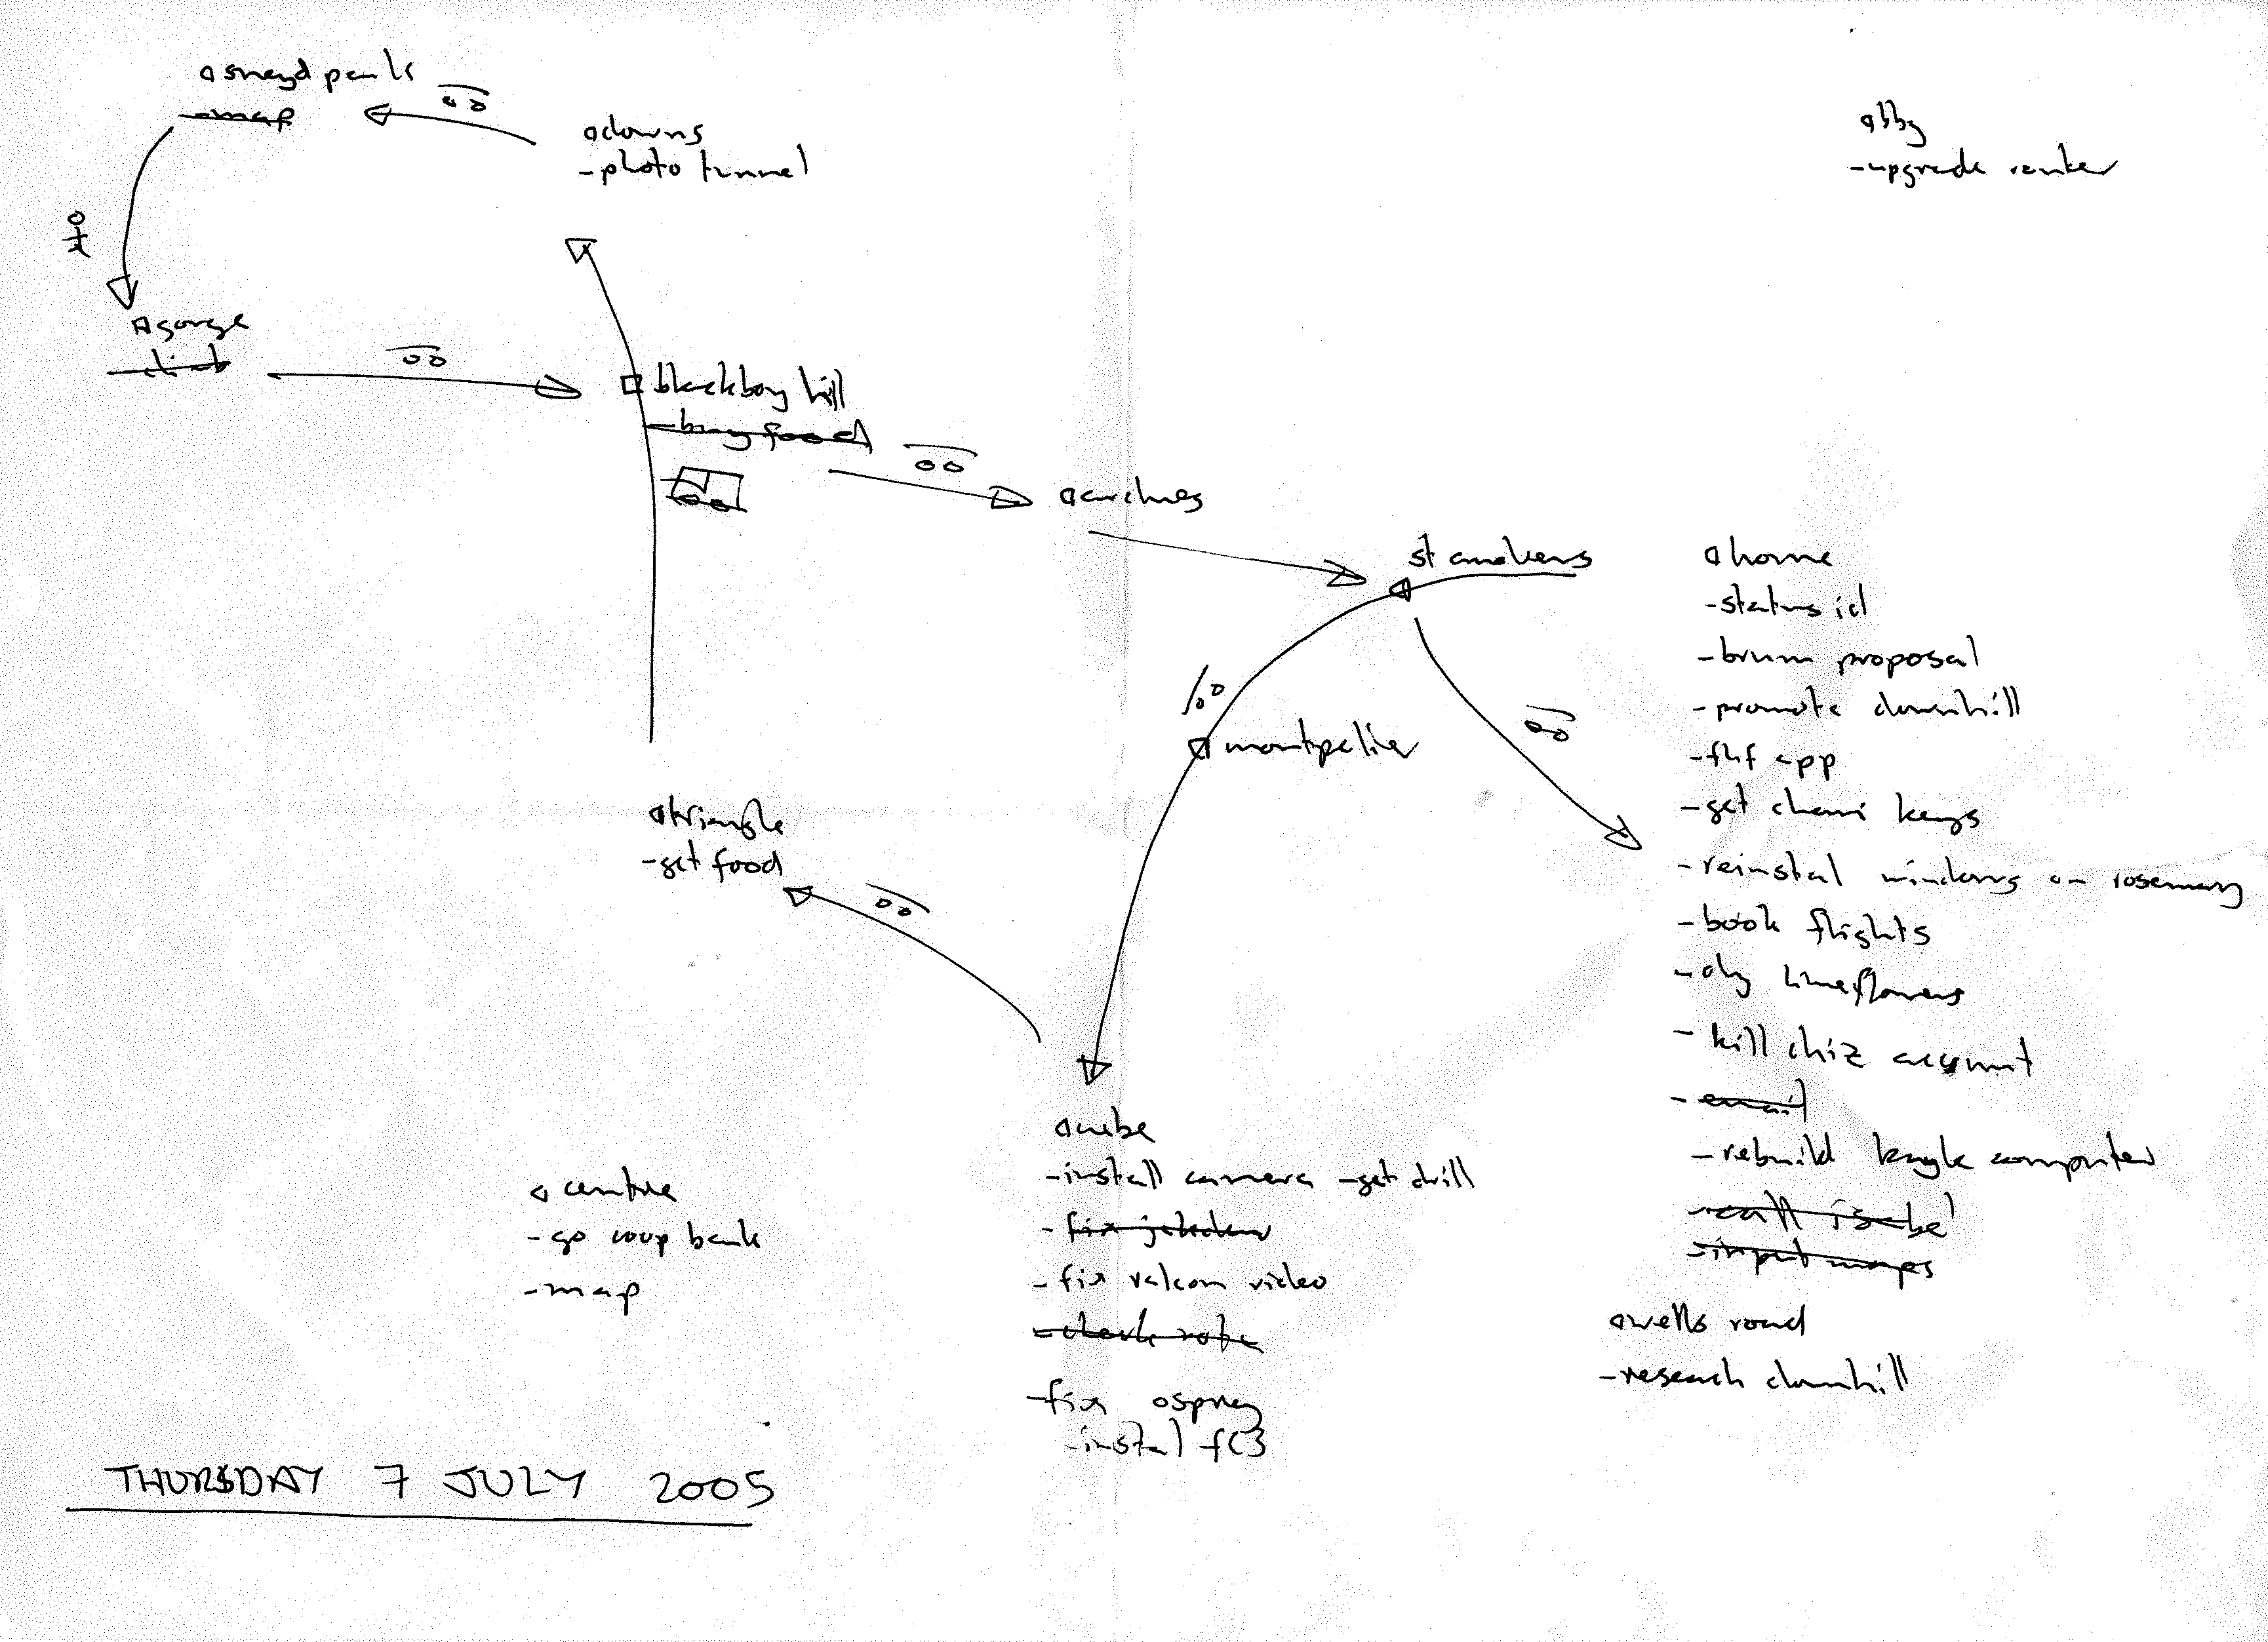 sneyd park
-map
downs
-photo tunnel
bbg
-upgrade router
gorge
blackboy hill
-buy food
arches
st andrews
montpelier
home
-status id
-brum proposal
-promote downhill
-fhf app
-get chemi keys
-reinstal windows on rosemary
-book flights
-dry limeflowers
-kill chiz account
-email
-rebuild kayle computer
-call isabel
-input maps
triangle
-get food
cube
-install camera -get drill
-fix
-fix video
-check
-fix osprey
-instal fc3
centre
-go coop bank
-map
wells road
-research downhill
THURSDAY 7 JULY 2005